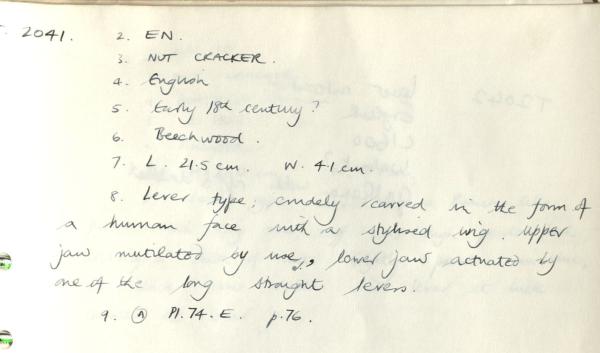 T. 2041. 2. EN.
3. NUT CRACKER.
4. English
5. Early 18th century?
6. Beechwood.
7. L. 21.5 cm. W. 4.1 cm.
8. Lever type; crudely carved in the form of
a human face with a stylised wig. Upper
jaw mutilated by use, lower jaw actuated by
one of the long straight levers.
9. Ⓐ Pl. 74. E. p. 76.
T2042